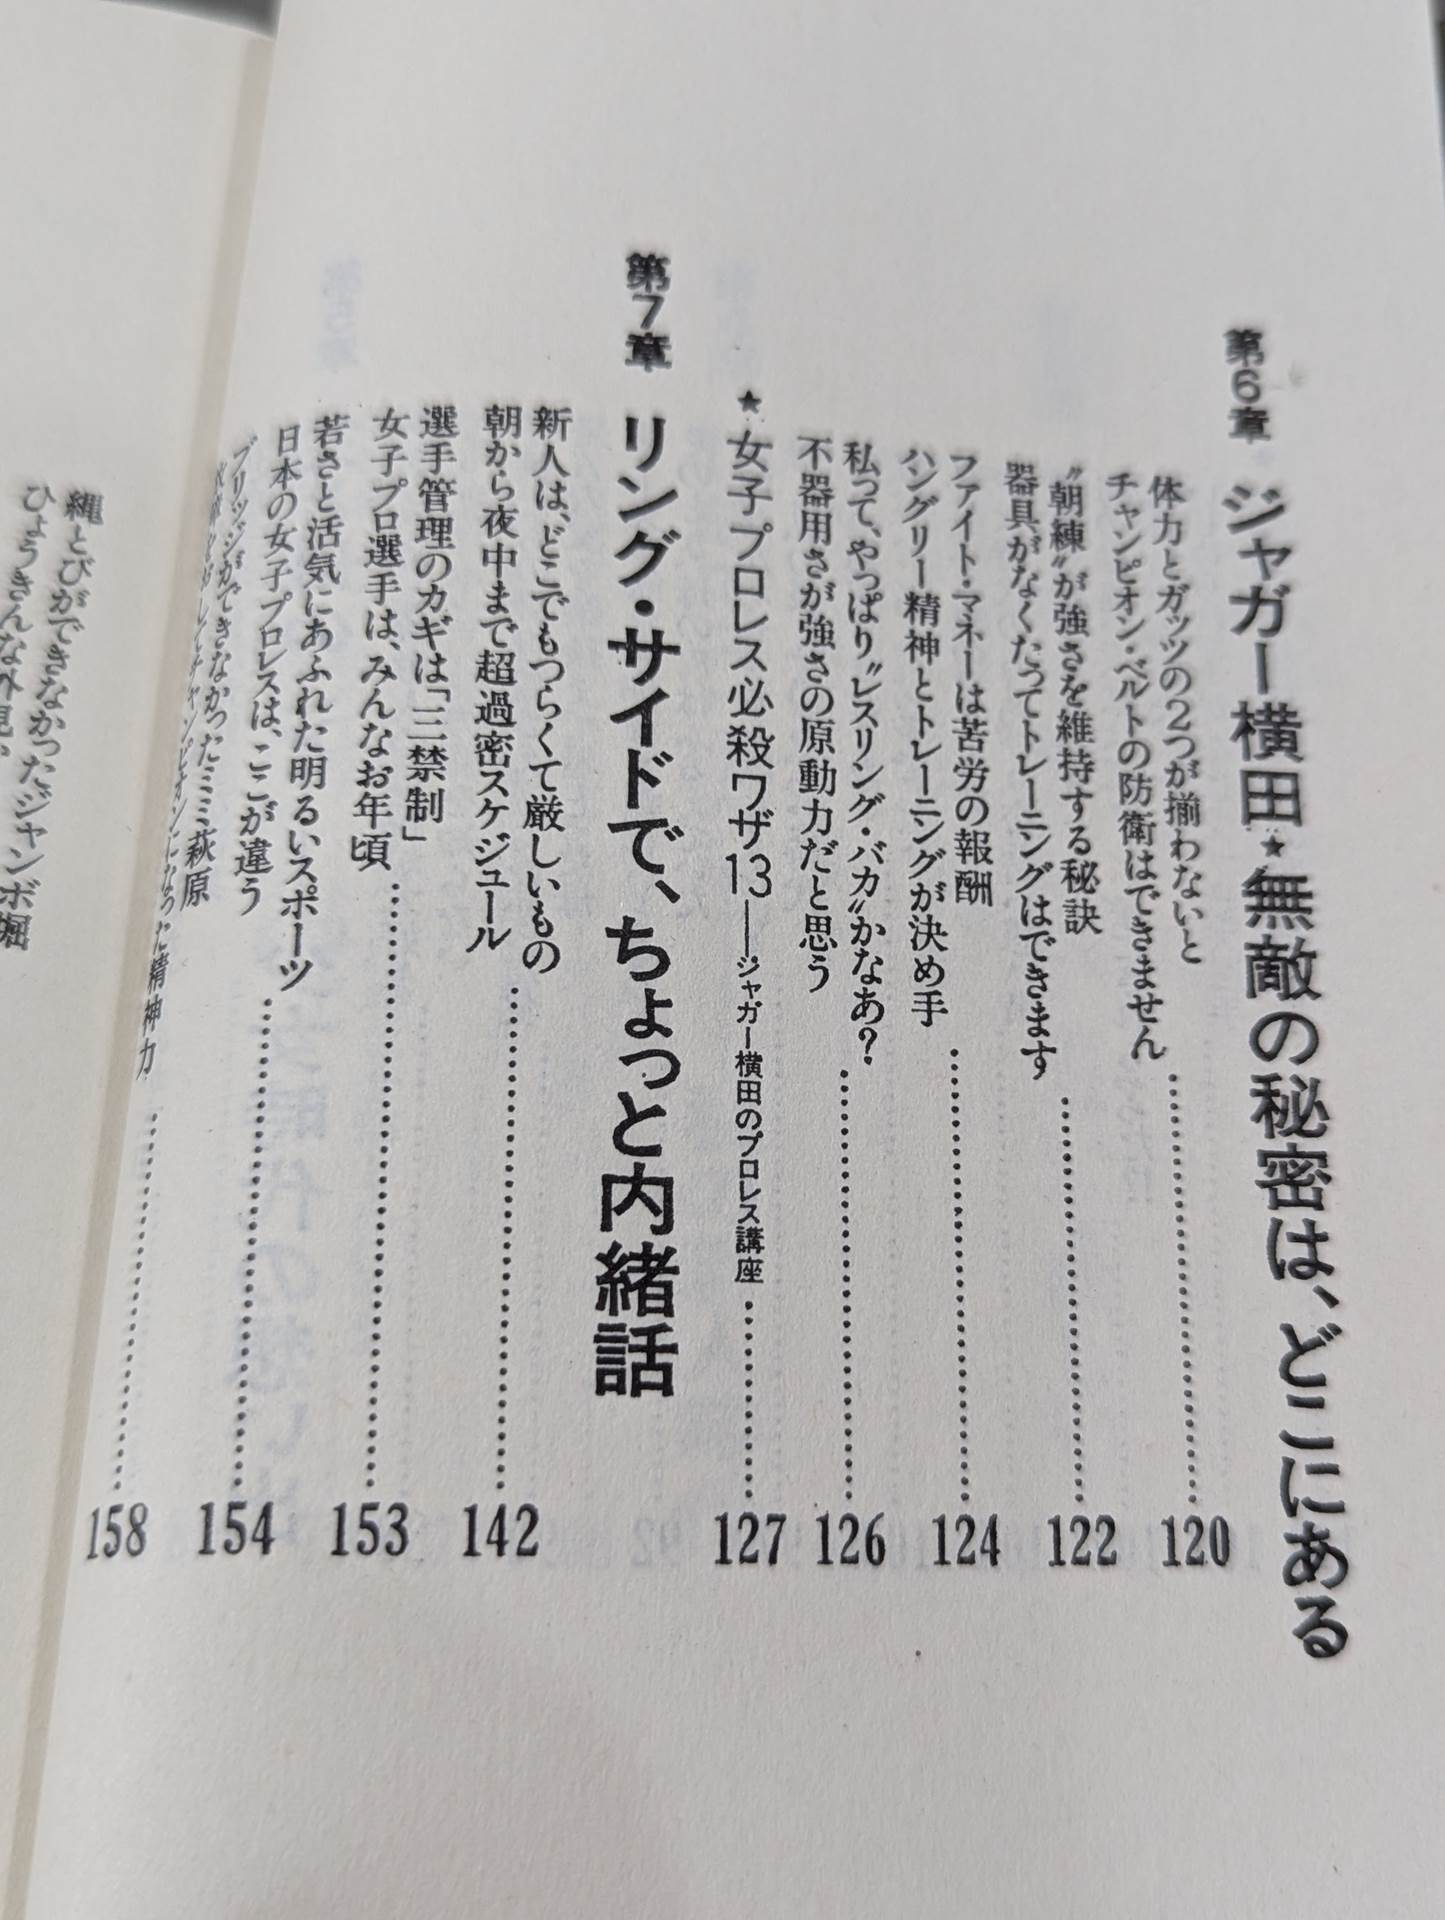 第6章 ジャガー横田★無敵の秘密は、どこにある
体力とガッツの2つが揃わないと
チャンピオン・ベルトの防衛はできません……120
〝朝練〟が強さを維持する秘訣
器具がなくたってトレーニングはできます……122
ファイト・マネーは苦労の報酬
ハングリー精神とトレーニングが決め手……124
私って、やっぱり〝レスリング・バカ〟かなあ?
不器用さが強さの原動力だと思う……126
★女子プロレス必殺ワザ13──ジャガー横田のプロレス講座……127
第7章 リング・サイドで、ちょっと内緒話
新人は、どこでもつらくて厳しいもの
朝から夜中まで超過密スケジュール……142
選手管理のカギは「三禁制」
女子プロ選手は、みんなお年頃……153
若さと活気にあふれた明るいスポーツ
日本の女子プロレスは、ここが違う……154
ブリッジができなかったミミ萩原
チャンピオンになった精神力……158
縄とびができなかったジャンボ堀
ひょうきんな外見